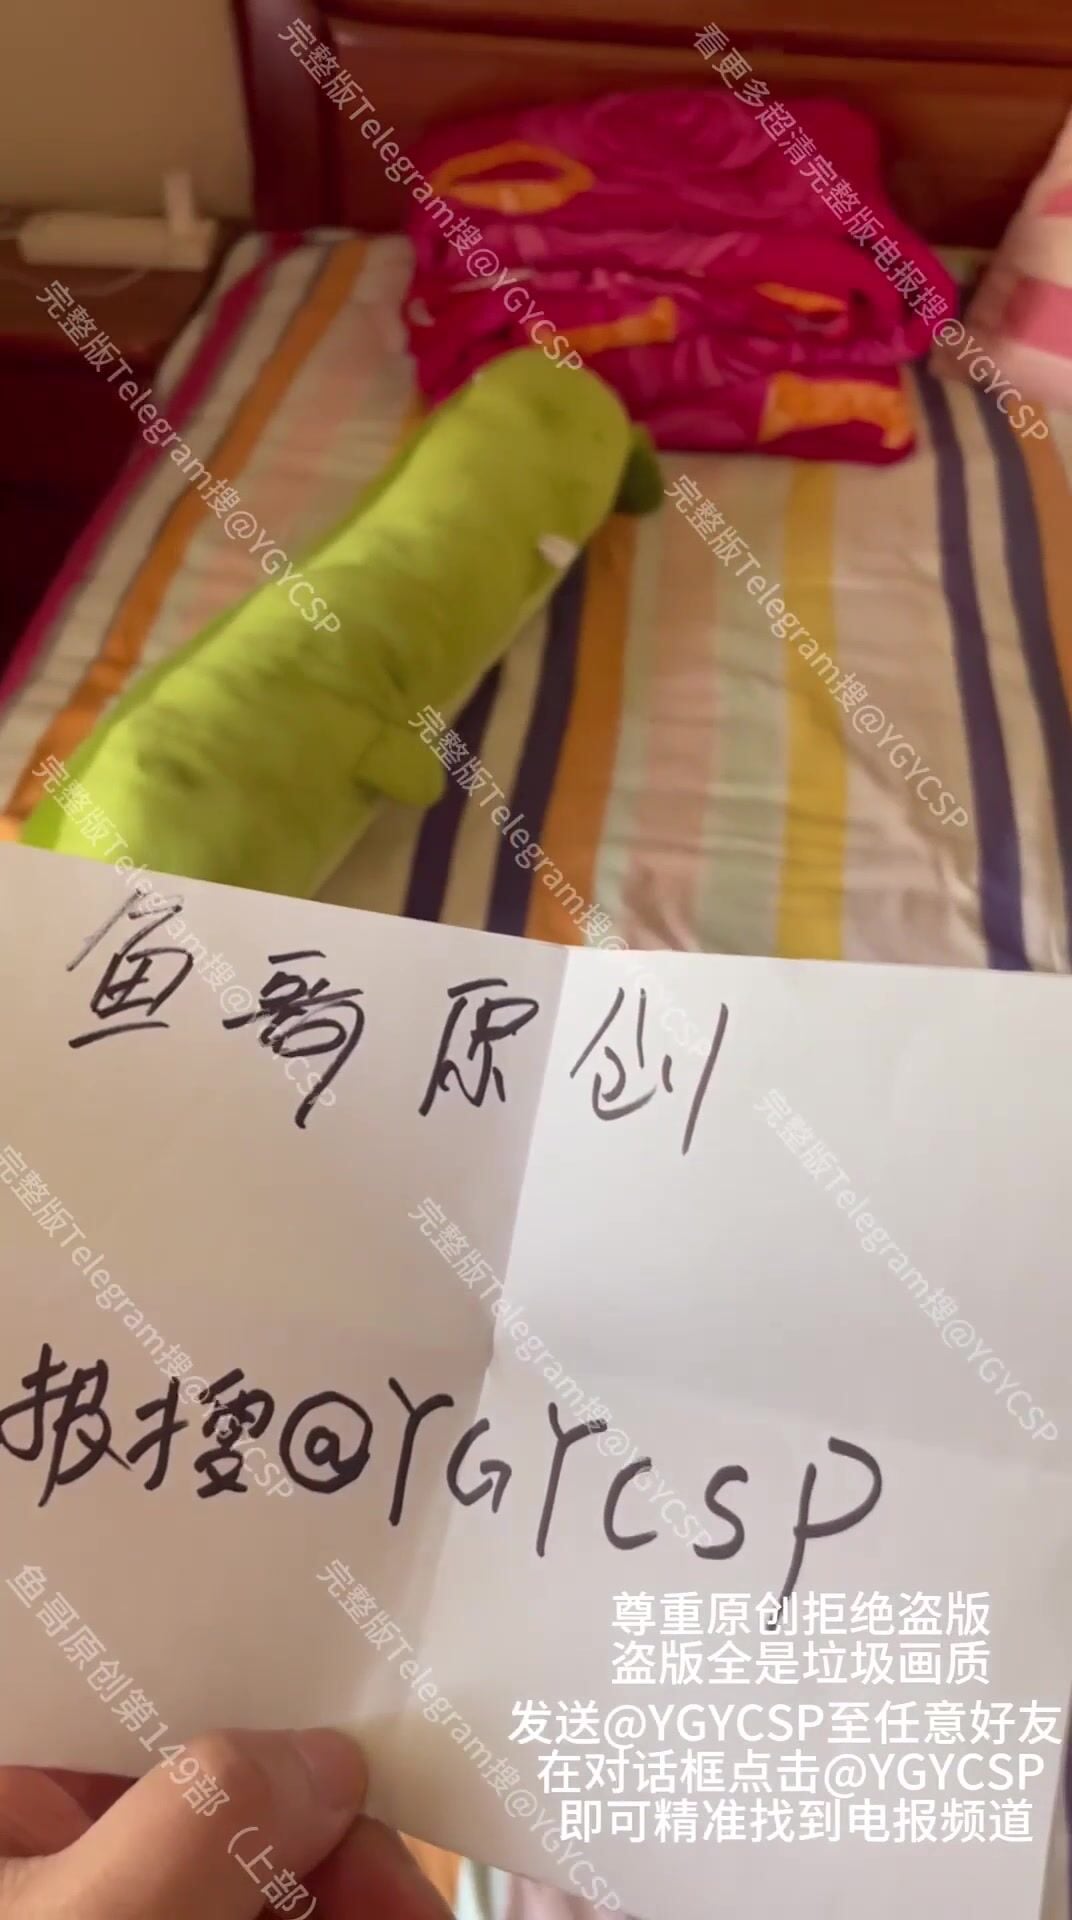 完整版Telegram搜@YGYCSP
看更多超清完整版电报搜@YGYCSP
完整版Telegram搜@YGYCSP
完整版Telegram搜@YGYCSP
完整版Telegram搜@YGYCSP
完整版Telegram搜@YGYCSP
鱼哥原创
完整版Telegram搜@YGYCSP
完整版Telegram搜@YGYCSP
完整版Telegram搜@YGYCSP
报搜@YGYCSP
鱼哥原创第149部（上部）
完整版Telegram搜@YGYCSP
尊重原创拒绝盗版
盗版全是垃圾画质
发送@YGYCSP至任意好友
在对话框点击@YGYCSP
即可精准找到电报频道